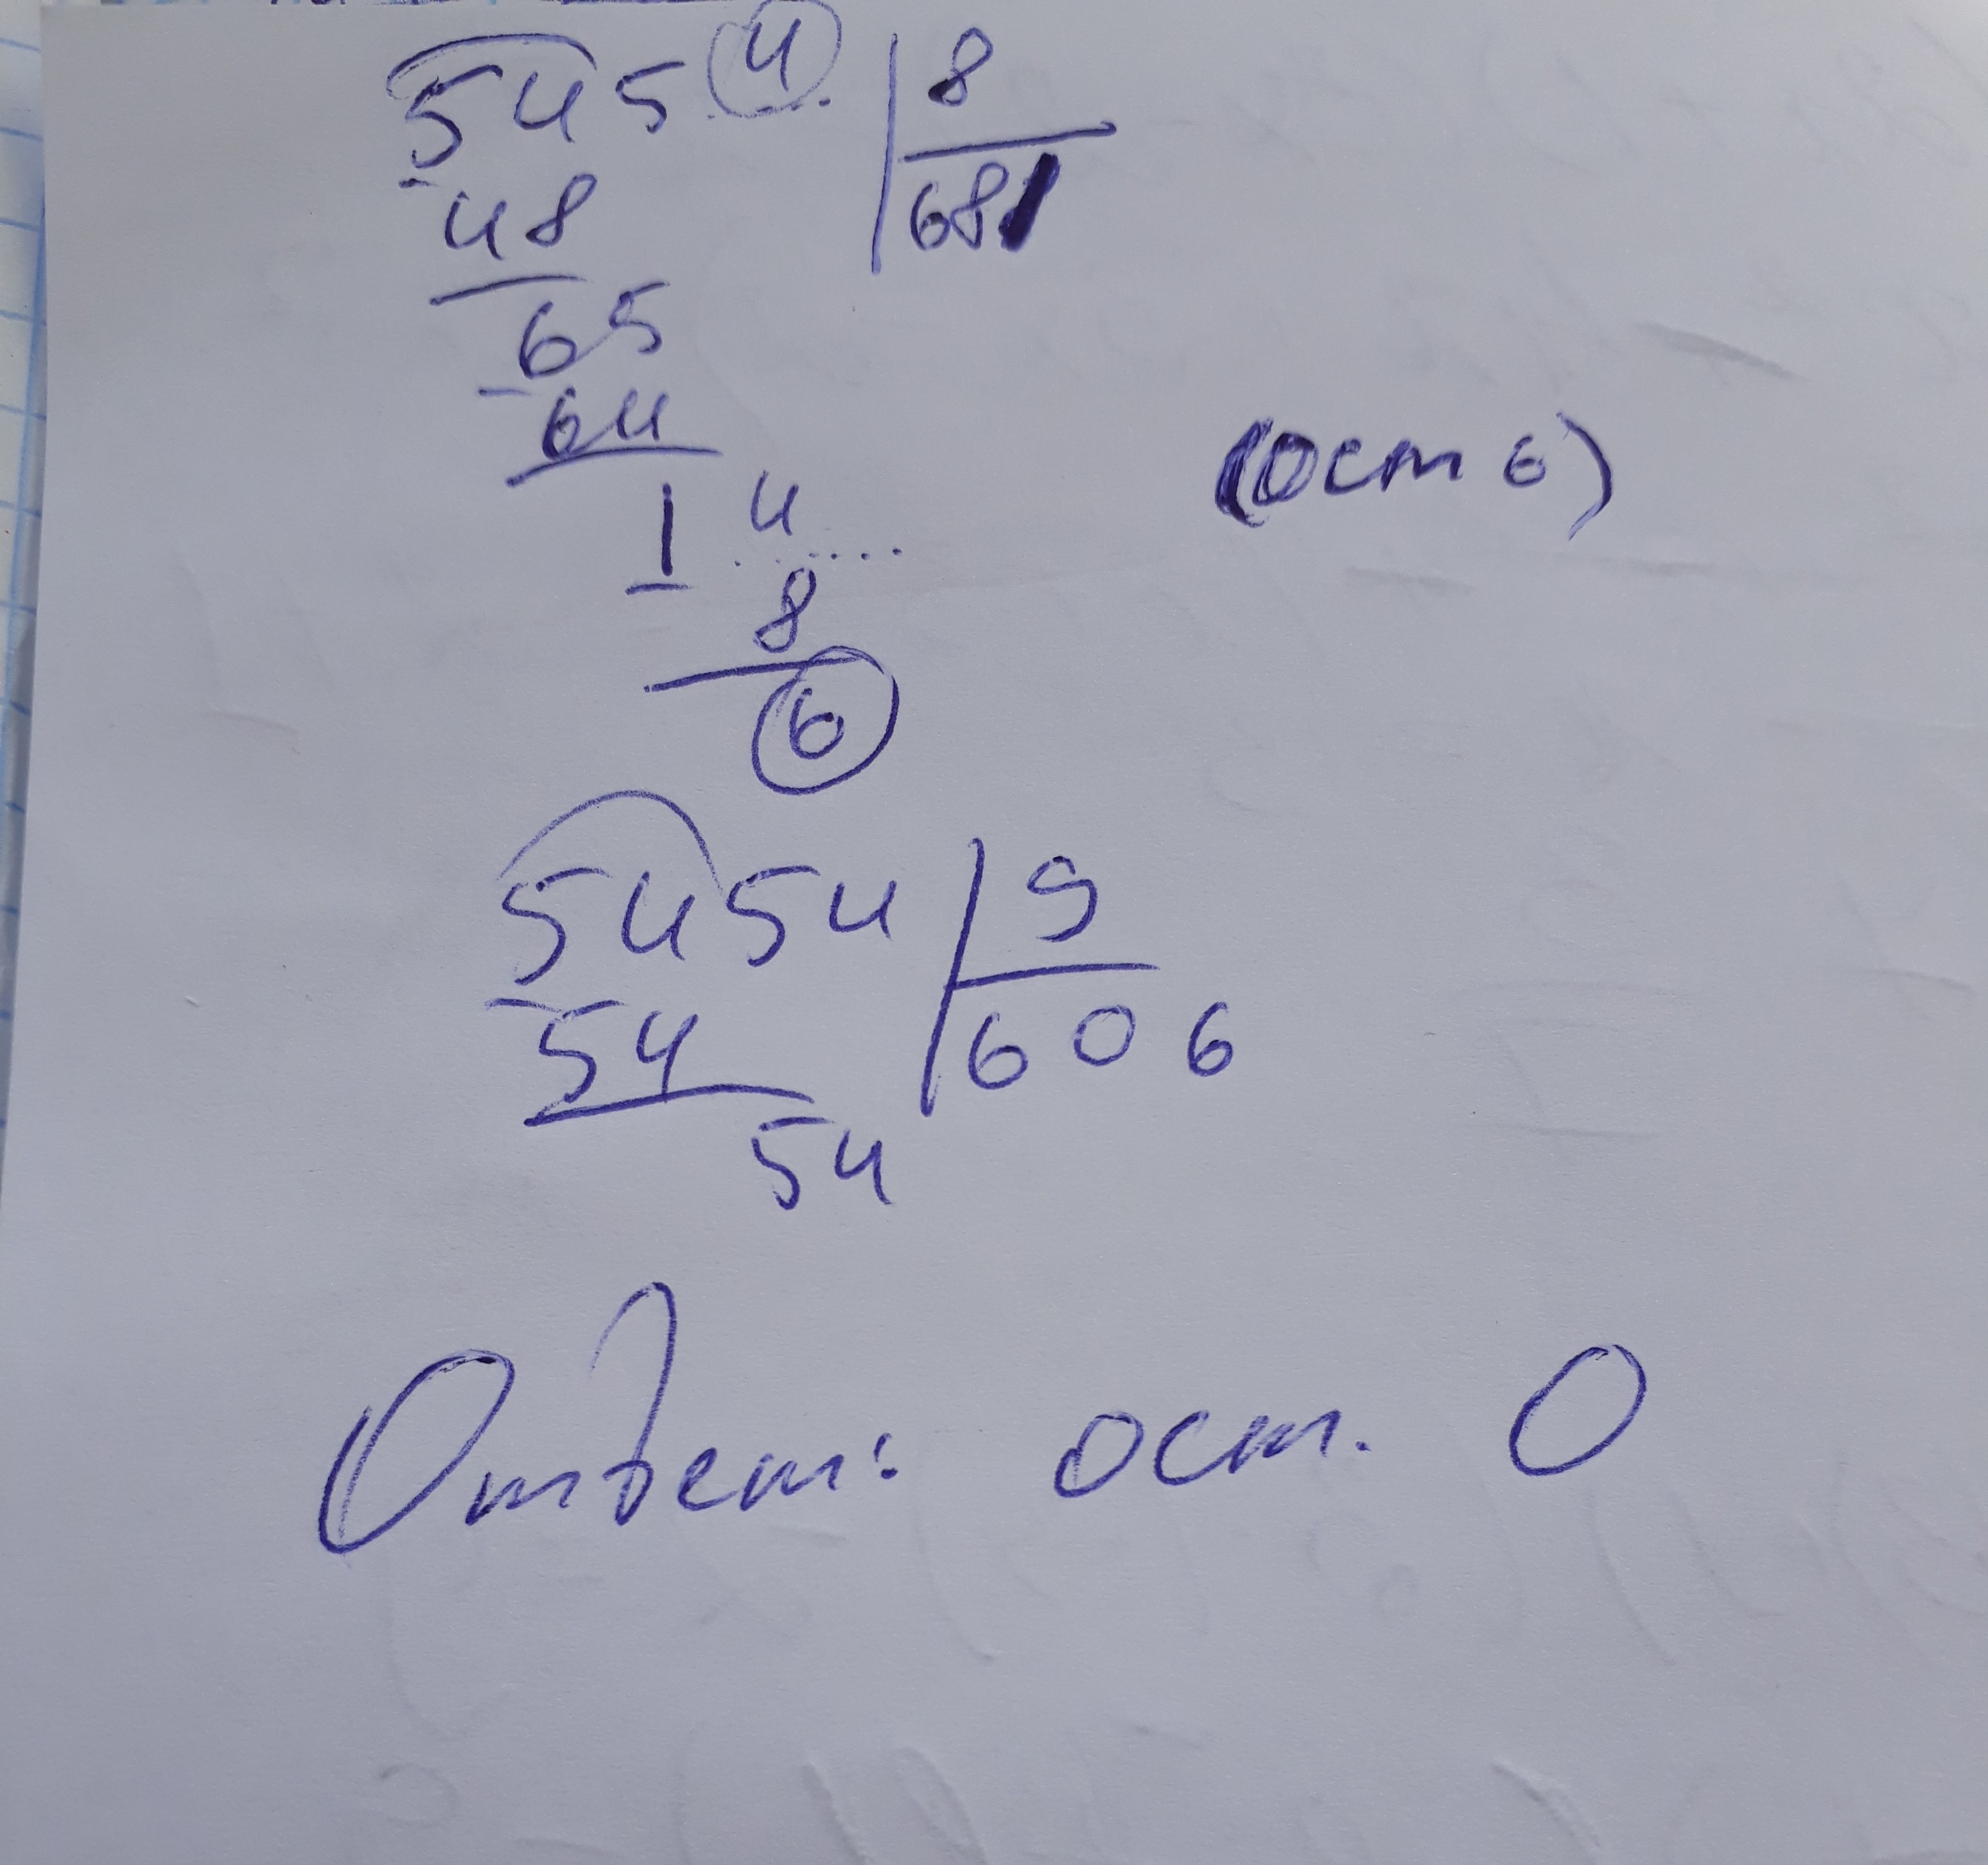 5454 | 8
48 | 681
65
64
(ост 6)
14
8
6
5454 | 9
54 | 606
54
Ответ: ост. 0